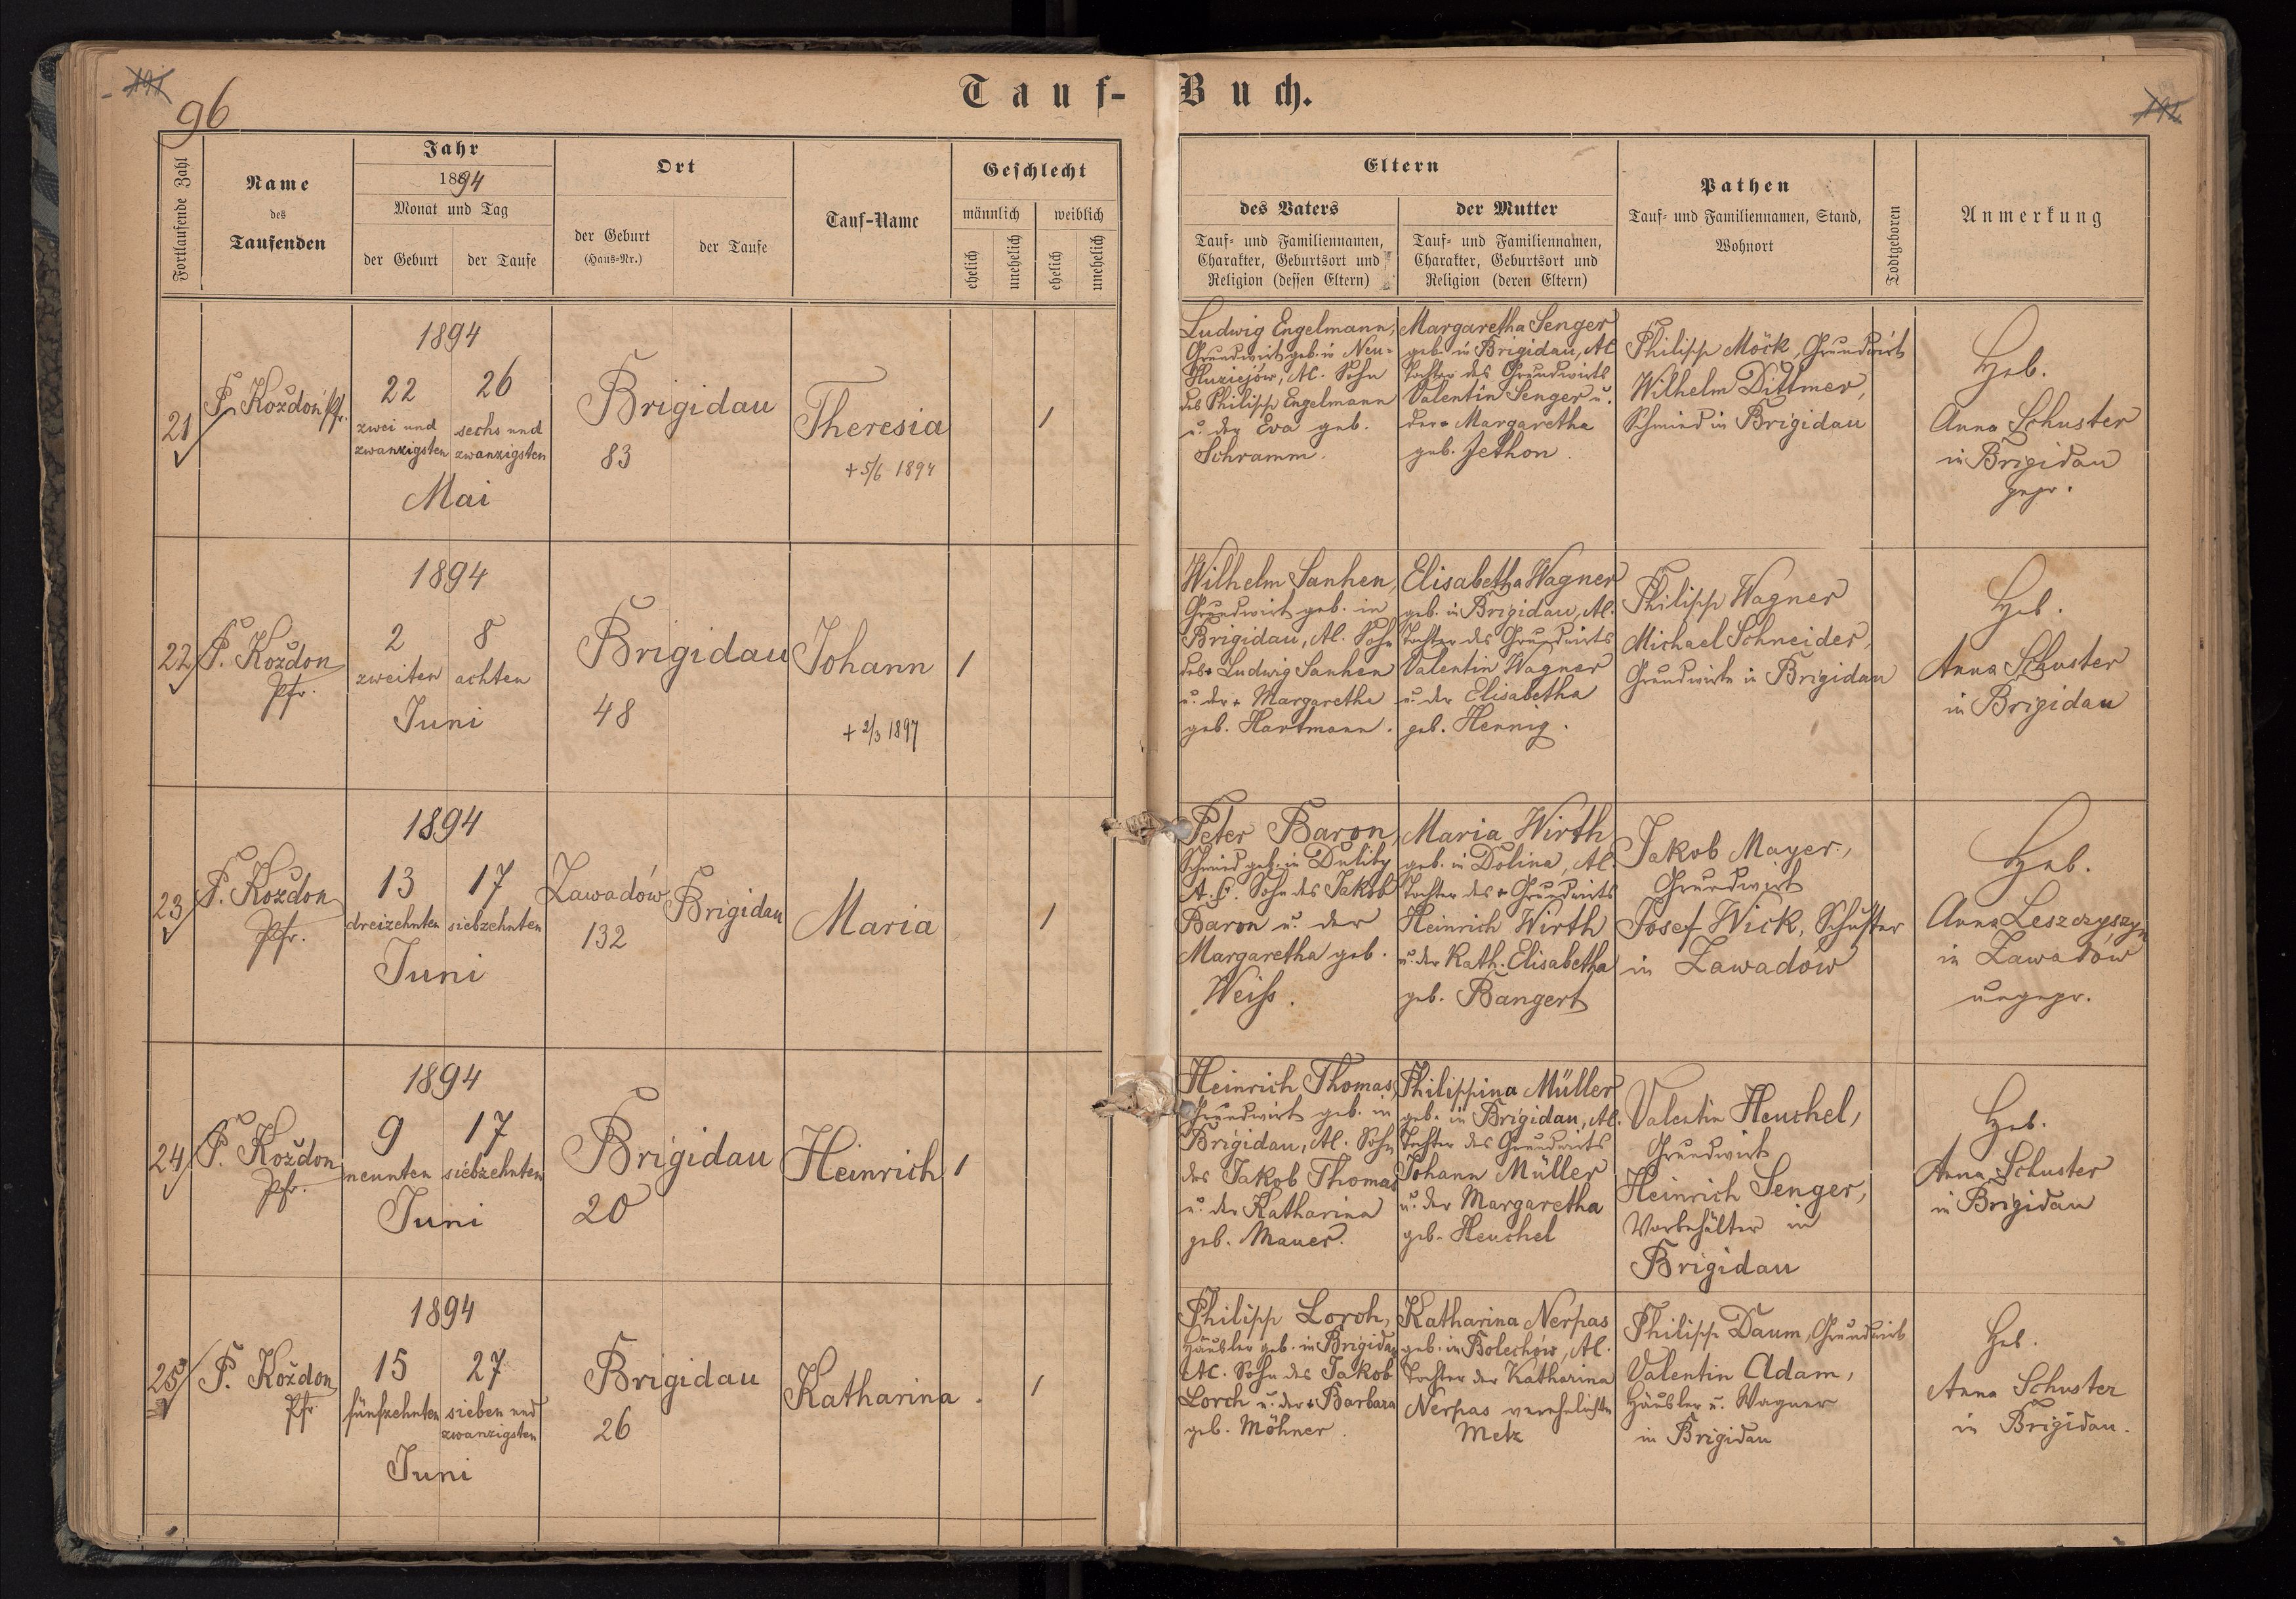 191
96
Tauf-Buch.
192
Fortlaufende Zahl
Name
des
Taufenden
Jahr
1894
Monat und Tag
der Geburt
der Taufe
Ort
der Geburt
(Haus-Nr.)
der Taufe
Tauf-Name
Geschlecht
männlich
weiblich
ehelich
unehelich
ehelich
unehelich
Eltern
des Vaters
Tauf- und Familiennamen,
Charakter, Geburtsort und
Religion (dessen Eltern)
der Mutter
Tauf- und Familiennamen,
Charakter, Geburtsort und
Religion (deren Eltern)
Pathen
Tauf- und Familiennamen, Stand,
Wohnort
Todtgeboren
Anmerkung
21
P. Koždoń Pfr.
1894
22
zwei und
zwanzigsten
26
sechs und
zwanzigsten
Mai
Brigidau
83
Theresia
+ 5/6 1894
1
Ludwig Engelmann,
Grundwirt geb. in Neu-
AC. Sohn
des Philipp Engelmann
u. der Eva geb.
Schramm.
Margaretha Senger
geb. in Brigidau, AC
Tochter des Grundwirts
Valentin Senger u.
der + Margaretha
geb. Jethon
Philipp Möck, Grundwirt
Wilhelm Dittmer,
Schmied in Brigidau
Heb.
Anna Schuster
in Brigidau
gepr.
22
P. Koždon
Pfr.
1894
2
zweiten
8
achten
Juni
Brigidau
48
Johann
+ 2/3 1897
1
Wilhelm Sanhen,
Grundwirt geb. in
Brigidau, AC. Sohn
des + Ludwig Sanhen
u. der + Margaretha
geb. Hartmann.
Elisabetha Wagner
geb. in Brigidau, AC.
Tochter des Grundwirts
Valentin Wagner
u. der Elisabetha
geb. Hennig.
Philipp Wagner
Michael Schneider,
Grundwirte in Brigidau
Heb.
Anna Schuster
in Brigidau
23
P. Koždon
Pfr.
1894
13
dreizehnten
17
siebzehnten
Juni
Zawadów
132
Brigidau
Maria
1
Peter Baron,
Schmied geb. in Duliby
A.C. Sohn des Jakob
Baron u. der
Margaretha geb.
Weiss.
Maria Wirth
geb. in Dolina, AC.
Tochter des + Grundwirts
Heinrich Wirth
u. der Kath. Elisabetha
geb. Bangert
Jakob Mayer,
Grundwirt
Josef Wick, Schuster
in Zawadów
Heb.
Anna Leszczyszyn
in Zawadów
ungepr.
24
P. Koždon
Pfr.
1894
9
neunten
17
siebzehnten
Juni
Brigidau
20
Heinrich
1
Heinrich Thomas,
Grundwirt geb. in
Brigidau, AC. Sohn
des Jakob Thomas
u. der Katharina
geb. Mauer.
Philippina Müller
geb. in Brigidau, AC.
Tochter des Grundwirts
Johann Müller
u. der Margaretha
geb. Heuchel
Valentin Heuchel,
Grundwirt
Heinrich Senger,
Vorbehälter in
Brigidau
Heb.
Anna Schuster
in Brigidau
25
P. Koždon
Pfr
1894
15
fünfzehnten
27
sieben und
zwanzigsten
Juni
Brigidau
26
Katharina.
1
Philipp Lorch,
Häusler geb. in Brigidau
AC. Sohn des Jakob
Lorch u. der + Barbara
geb. Möhner.
Katharina Nerpas
geb. in Bolechów, AC.
Tochter der Katharina
Nerpas verehelichte
Metz
Philipp Daum, Grundwirt
Valentin Adam,
Häusler u. Wagner
in Brigidau
Heb.
Anna Schuster
in Brigidau.